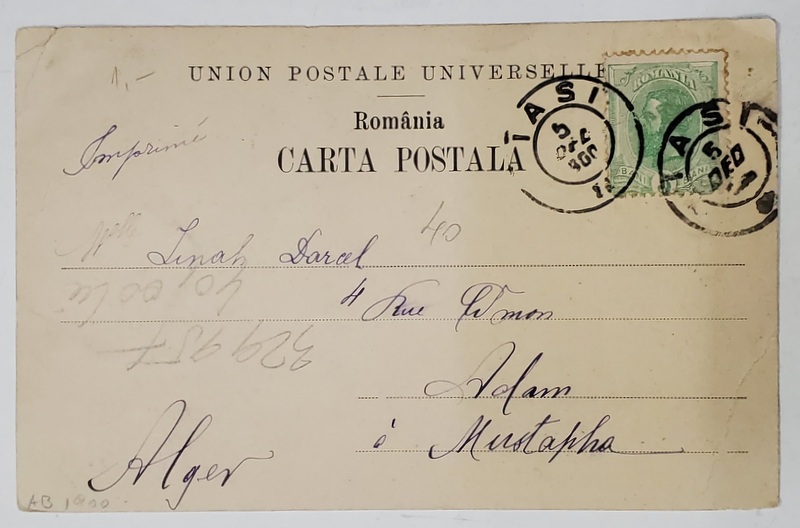 1,-
UNION POSTALE UNIVERSELLE
România
CARTA POSTALA
Imprimé
ROMANIA
5 BANI
IASI
5
DEC
900
IASI
5
DEC
40
Linah Darcel
40,00 lei
4 Rue Edmon
329957
Adam
à Mustapha
Alger
AB 1900